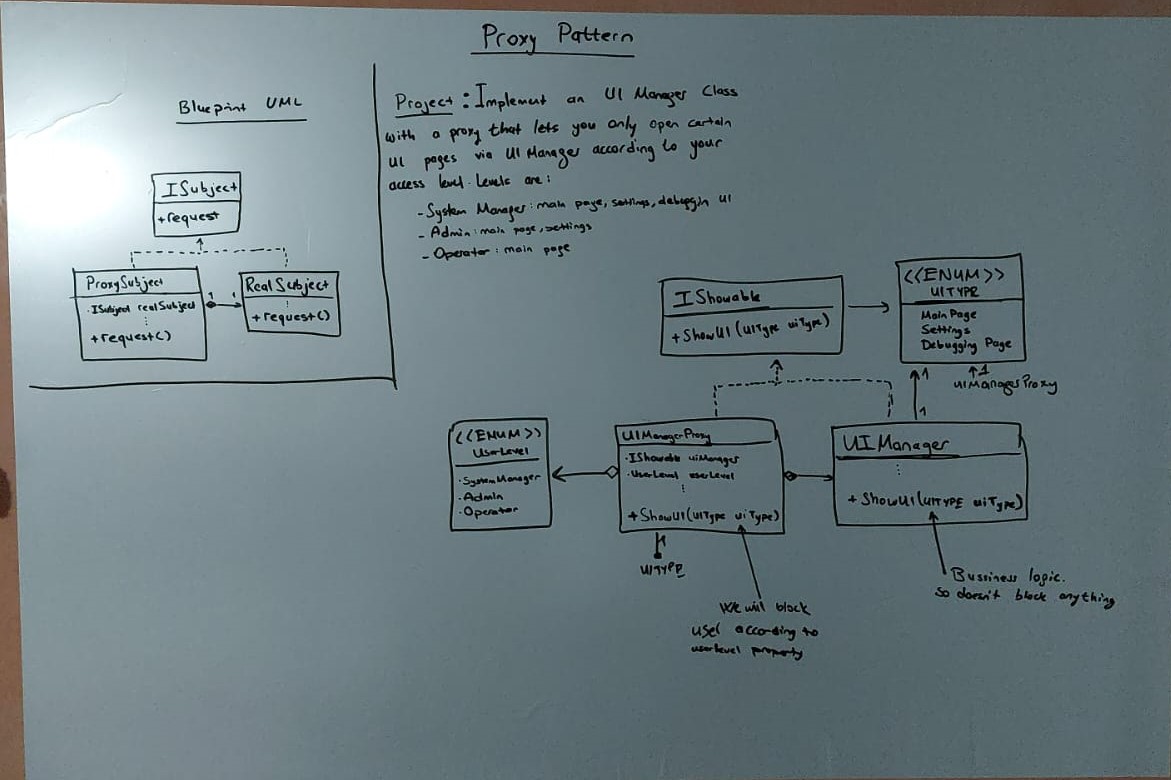 Proxy Pattern
Blueprint UML
ISubject
+request
ProxySubject
·ISubject realSubject
⋮
+request()
1
1
RealSubject
⋮
+request()
Project: Implement an UI Manager Class
with a proxy that lets you only open certain
UI pages via UI Manager according to your
access level. Levels are:
- System Manager: main page, settings, debuggin UI
- Admin: main page, settings
- Operator: main page
IShowable
+ShowUI(UIType uiType)
<<ENUM>>
UITYPE
Main Page
Settings
Debugging Page
1
UIManagerProxy
1
1
<<ENUM>>
UserLevel
·SystemManager
·Admin
·Operator
UIManagerProxy
·IShowable uiManager
·UserLevel userLevel
⋮
+ShowUI(UIType uiType)
1
UITYPE
UIManager
⋮
+ShowUI(UITYPE uiType)
We will block
user according to
userlevel property
Bussiness logic.
so doesn't block anything